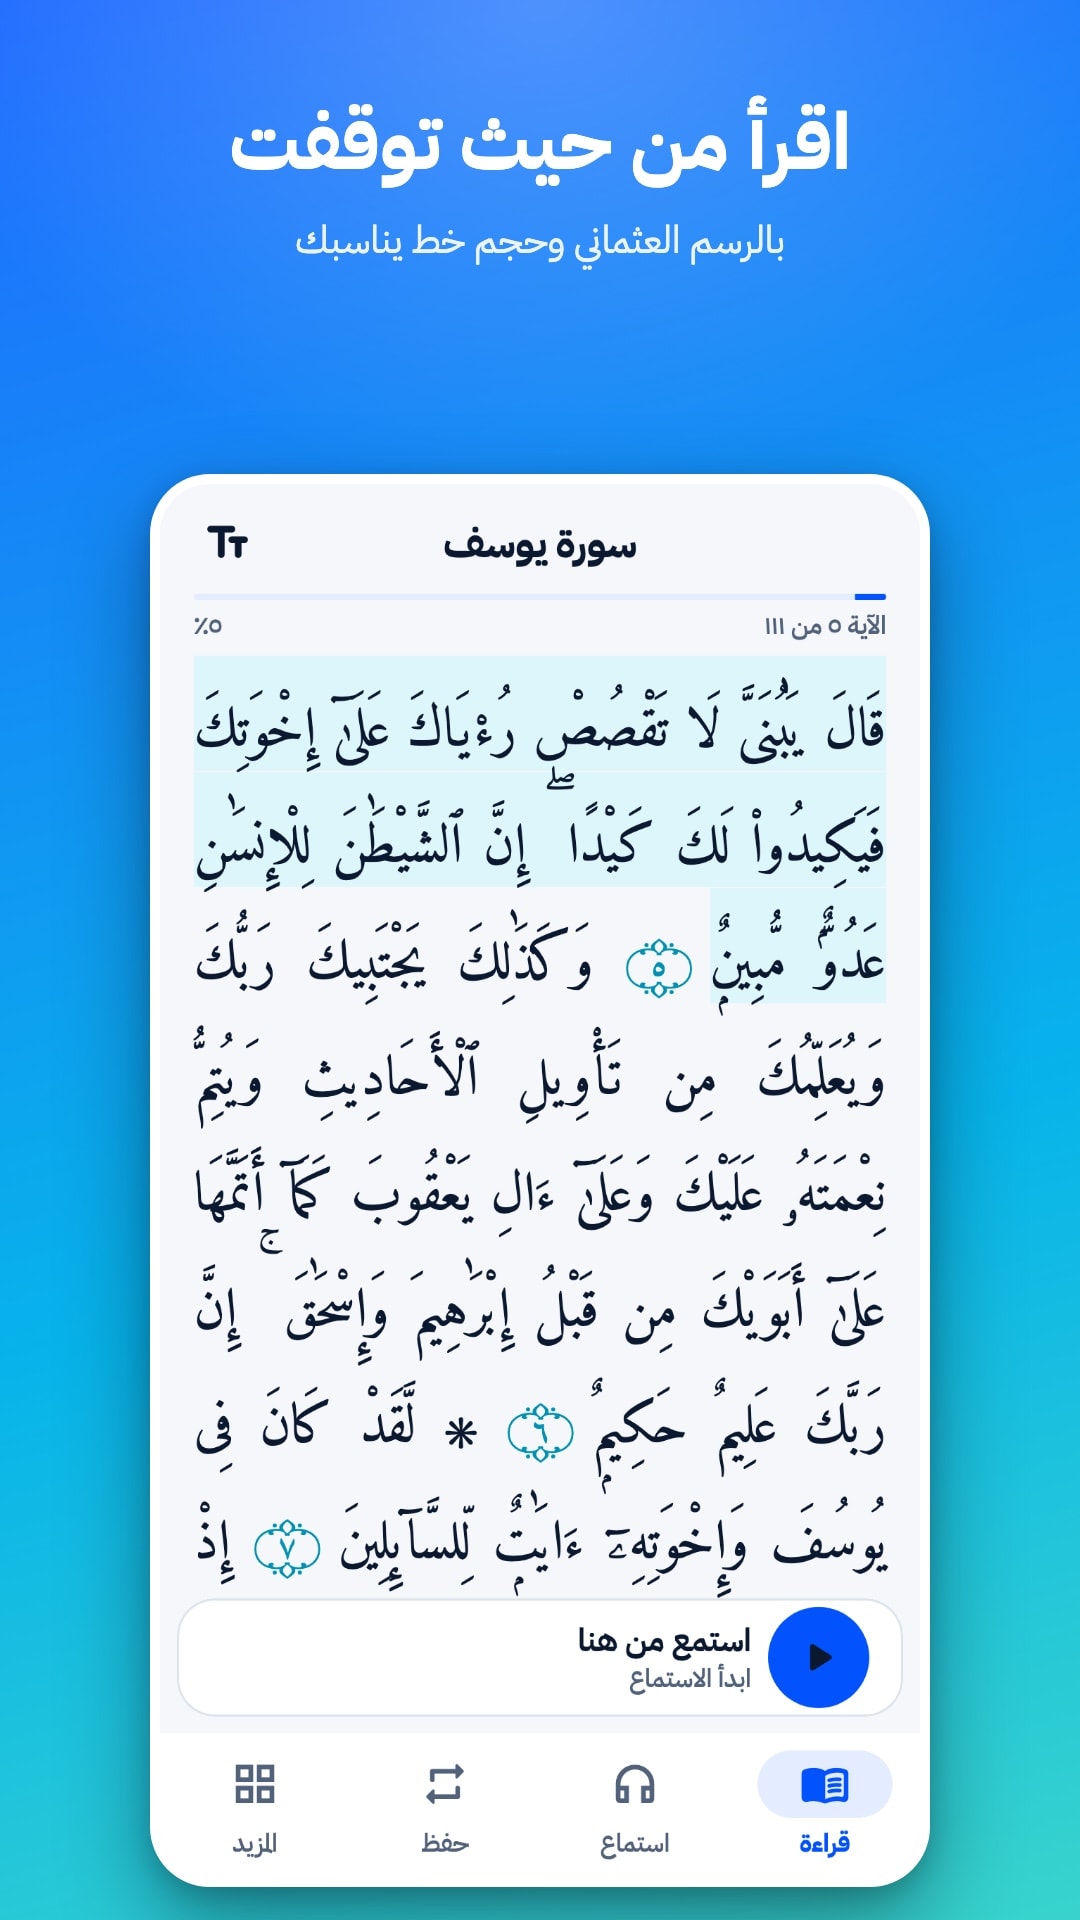 اقرأ من حيث توقفت
بالرسم العثماني وحجم خط يناسبك
سورة يوسف
الآية ٥ من ١١١
٥٪
قَالَ يَٰبُنَىَّ لَا تَقْصُصْ رُءْيَاكَ عَلَىٰٓ إِخْوَتِكَ
فَيَكِيدُوا۟ لَكَ كَيْدًا ۖ إِنَّ ٱلشَّيْطَٰنَ لِلْإِنسَٰنِ
عَدُوٌّ مُّبِينٌ ٥ وَكَذَٰلِكَ يَجْتَبِيكَ رَبُّكَ
وَيُعَلِّمُكَ مِن تَأْوِيلِ ٱلْأَحَادِيثِ وَيُتِمُّ
نِعْمَتَهُۥ عَلَيْكَ وَعَلَىٰٓ ءَالِ يَعْقُوبَ كَمَآ أَتَمَّهَا
عَلَىٰٓ أَبَوَيْكَ مِن قَبْلُ إِبْرَٰهِيمَ وَإِسْحَٰقَ ۚ إِنَّ
رَبَّكَ عَلِيمٌ حَكِيمٌ ٦ ۞ لَّقَدْ كَانَ فِى
يُوسُفَ وَإِخْوَتِهِۦٓ ءَايَٰتٌ لِّلسَّآئِلِينَ ٧ إِذْ
استمع من هنا
ابدأ الاستماع
قراءة
استماع
حفظ
المزيد